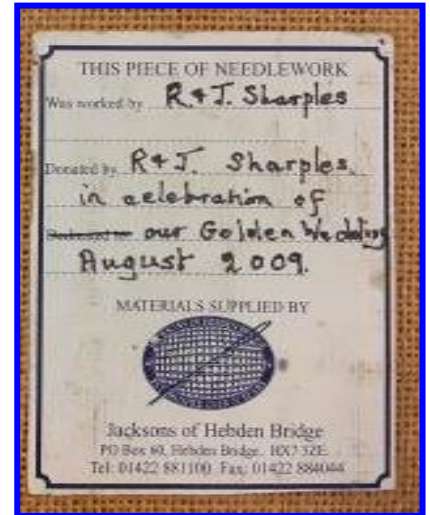 THIS PIECE OF NEEDLEWORK
Was worked by R & J. Sharples
Donated by R & J. Sharples.
in celebration of
our Golden Wedding
August 2009.
MATERIALS SUPPLIED BY
Jacksons of Hebden Bridge
PO Box 60, Hebden Bridge, HX7 5ZE.
Tel: 01422 881100 Fax: 01422 884044